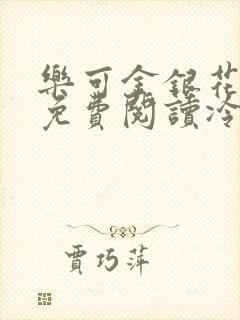 樂可金銀花
免費閱讀冷
賈巧萍